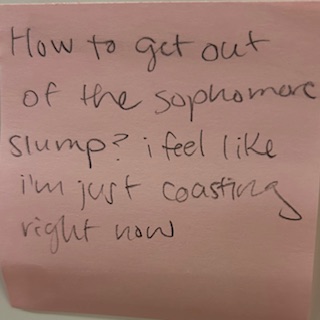 How to get out
of the sophomore
slump? i feel like
i'm just coasting
right now